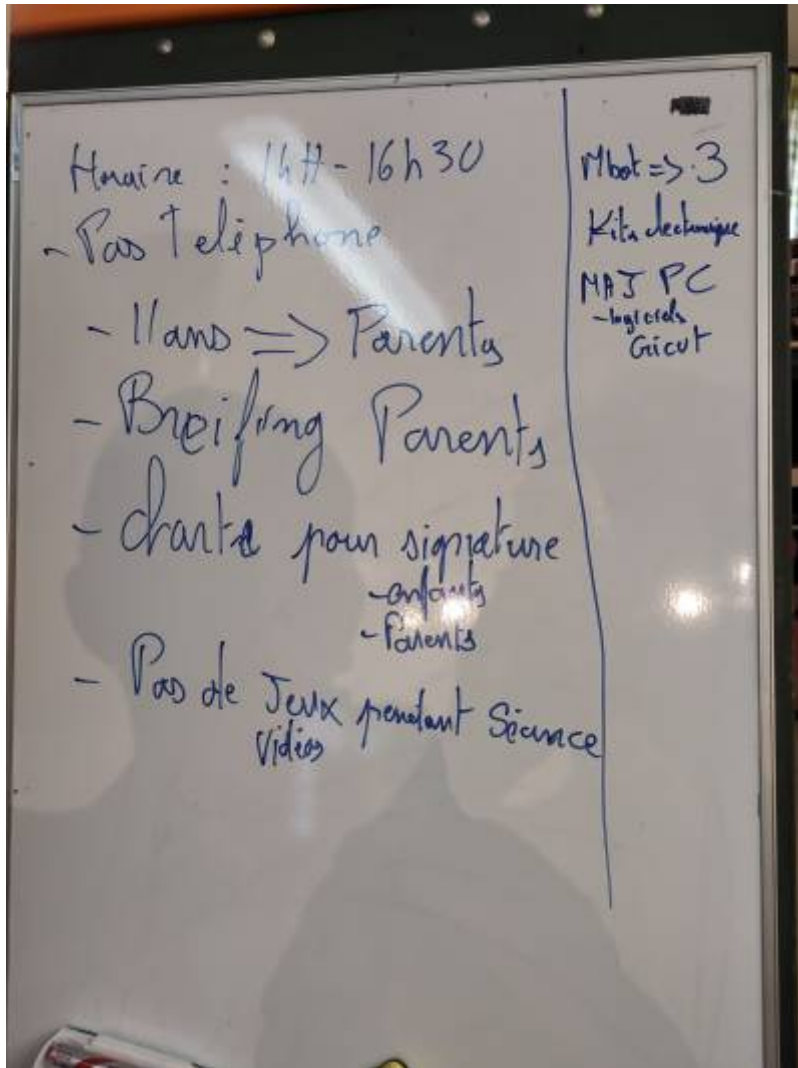 Horaire : 14H - 16h30
- Pas Telephone
- 11ans => Parents
- Breifing Parents
- charte pour signature
- enfants
- Parents
- Pas de Jeux pendant Séance
Vidéos
Mbot => 3
Kits electronique
MAJ PC
- logiciels